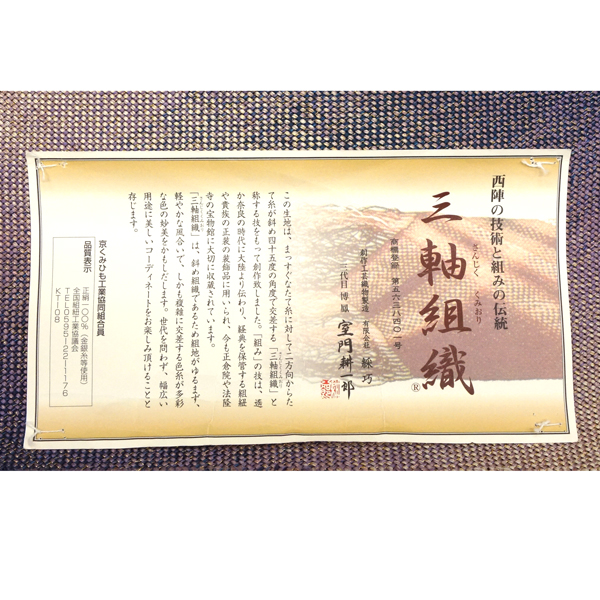 西陣の技術と組みの伝統
三軸組織®
さんじく くみおり
商標登録 第五六三八四〇一号
創作工芸織物製造 有限会社 綵巧
三代目 博鳳 室門耕一郎
この生地は、まっすぐなたて糸に対して二方向からた
て糸が斜め四十五度の角度で交差する「三軸組織」と
称する技をもって創作致しました。「組み」の技は、遙
か奈良の時代に大陸より伝わり、経典を保管する組紐
や貴族の正装の装飾品に用いられ、今も正倉院や法隆
寺の宝物館に大切に収蔵されています。
「三軸組織」は、斜め組織であるため組地がゆるまず、
軽やかな風合いで、しかも複雑に交差する色糸が多彩
な色の妙美をかもしだします。世代を問わず、幅広い
用途に美しいコーディネートをお楽しみ頂けることと
存じます。
京くみひも工業協同組合員
品質表示
正絹一〇〇%（金銀糸等使用）
全国組紐工業協議会
TEL0595-22-1176
KT-08